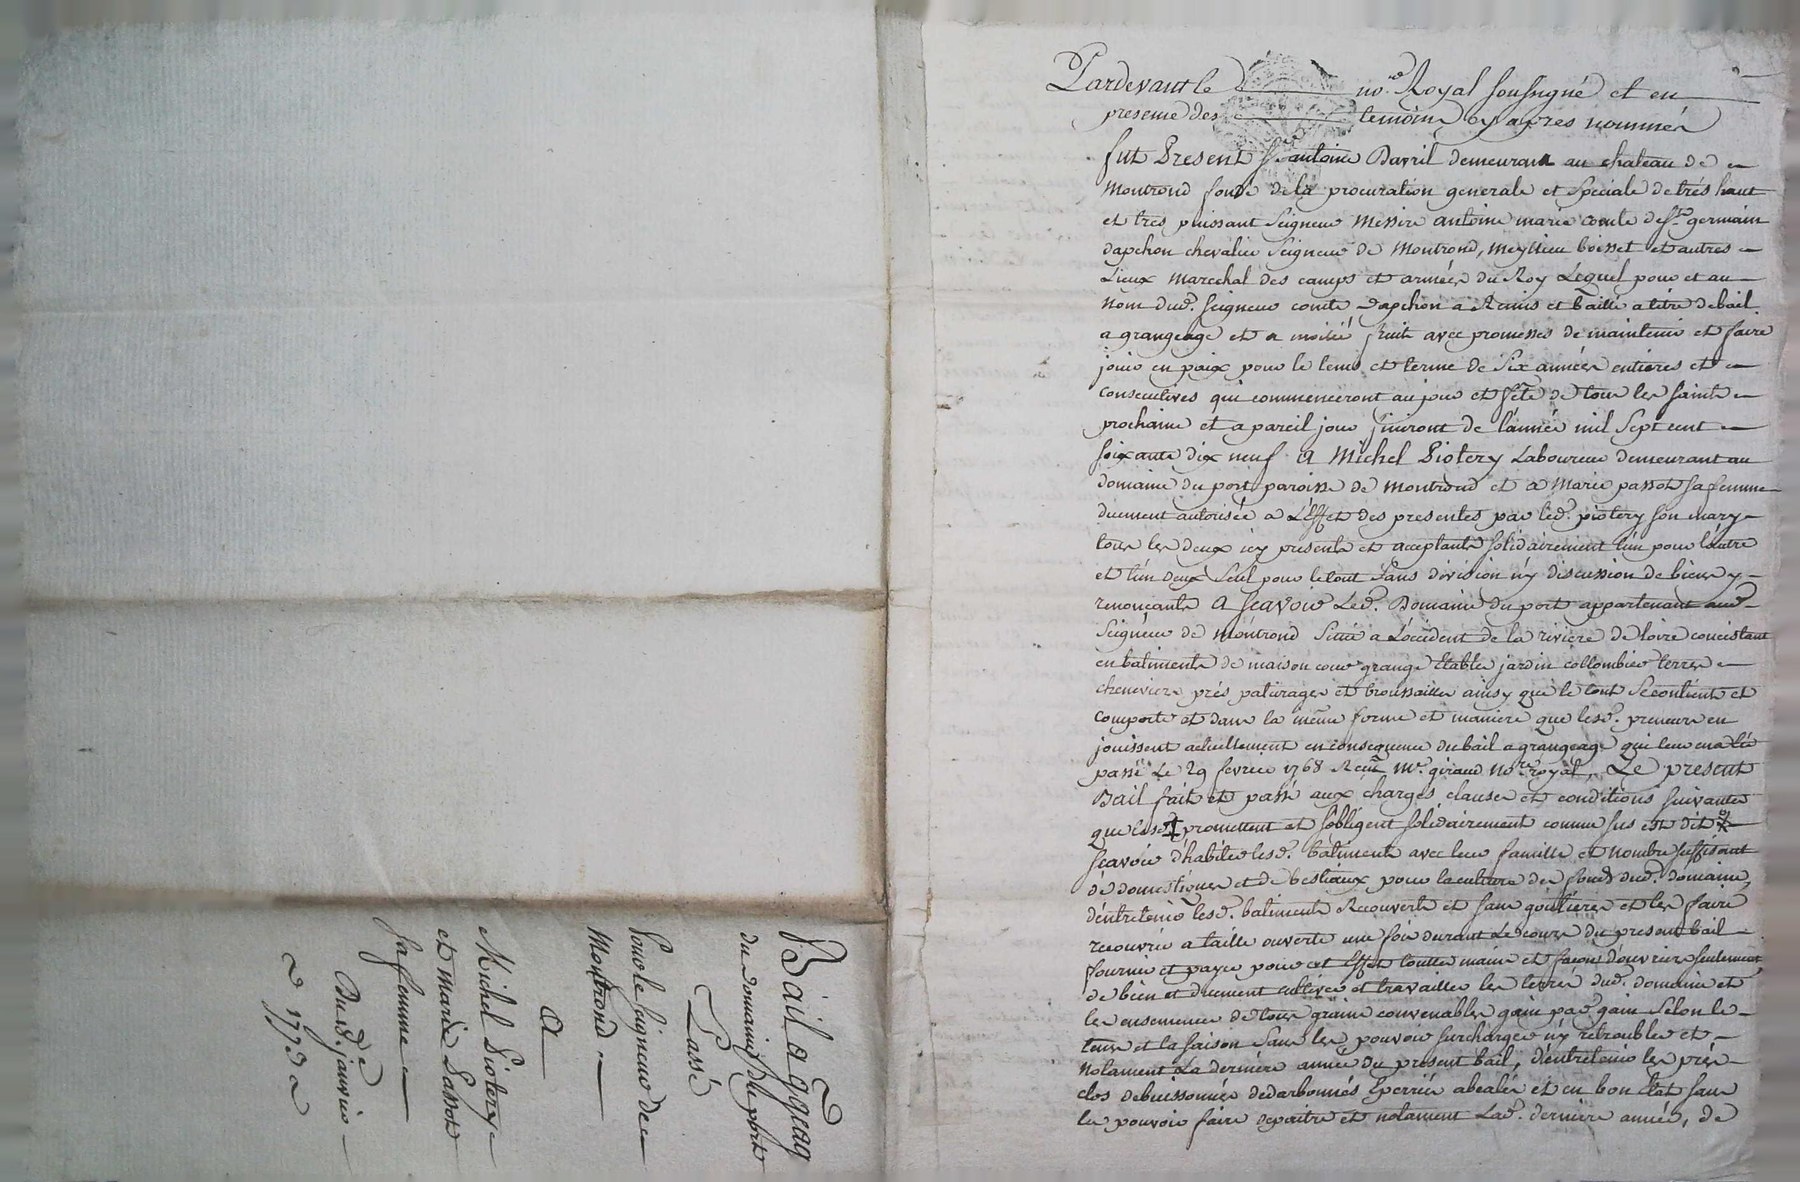 Bail a ggeag
du domaine du port
Passé
Pour le seigneur de
Montrond
A
Michel Piotery
et marie Passot
sa femme
Du d. janvier
1773
Pardevant le no.re Royal soussigné et en
presence des temoins cy apres nommés
fut Present Sr. antoine Davril demeurant au chateau de
Montrond fondé de la procuration generale et speciale de très haut
et tres puissant Seigneur Messire antoine marie comte de St. germain
dapchon chevalier Seigneur de Montrond, meylieu boisset et autres
Lieux marechal des camps et armées du Roy Lequel pour et au
nom dud. seigneur comte dapchon a Remis et baillé a titre de bail
a grangeage et a moitié fruit avec promesses de maintenir et faire
jouir en paix pour le tems et terme de Six années entieres et
consecutives qui commenceront au jour et fête de tous les saints
prochaine et a pareil jour finiront de l'année mil Sept cent
soixante dix neuf A Michel Piotery Laboureur demeurant au
domaine du port paroisse de Montrond et a Marie passot sa femme
duement autorisée a L'Effet des presentes par led. piotery son mary
tous les deux icy presents et acceptants solidairement l'un pour l'autre
et l'un deux Seul pour le tout sans division ny discussion de biens y
renonçants A Scavoir Led. Domaine du port appartenant aud.
Seigneur de Montrond Situé a L'occident de la riviere de loire concistant
en batiments de maison cour grange Etables jardin collombier terres
cheneviers prés paturages et broussailles ainsy que le tout Se contient et
comporte et dans la même forme et maniere que lesd. preneurs en
jouissent actuellement en consequence du bail a grangeage qui leur en a été
passé Le 29 fevrier 1768 Reçu Me. giraud No.re royal, Le present
Bail fait et passé aux charges clauses et conditions suivantes
que lesd. ‡ promettent et s'obligent solidairement comme sus est dit
Scavoir d'habiter lesd. batiments avec leur famille et nombre suffisant
de domestiques et de bestiaux pour la culture des fonds dud. domaine,
d'entretenir lesd. batiments Recouverts et sans goutieres et les faire
recouvrir a taille ouverte une fois durant Le cours du present bail
fournir et payer pour cet Effet toutte main et façon d'ouvrier seulement,
de bien et duement cultiver et travailler les terres dud. domaine et
les ensemencer de tous grains convenables gain par gain Selon le
tems et la saison Sans les pouvoir surcharger ny retroubler et
notament La derniere année du present bail, d'entretenir les prés
clos debuissonnés dedarbonnés Eperriés abealés et en bon Etat sans
les pouvoir faire depaitre et notament Lad. derniere année, de